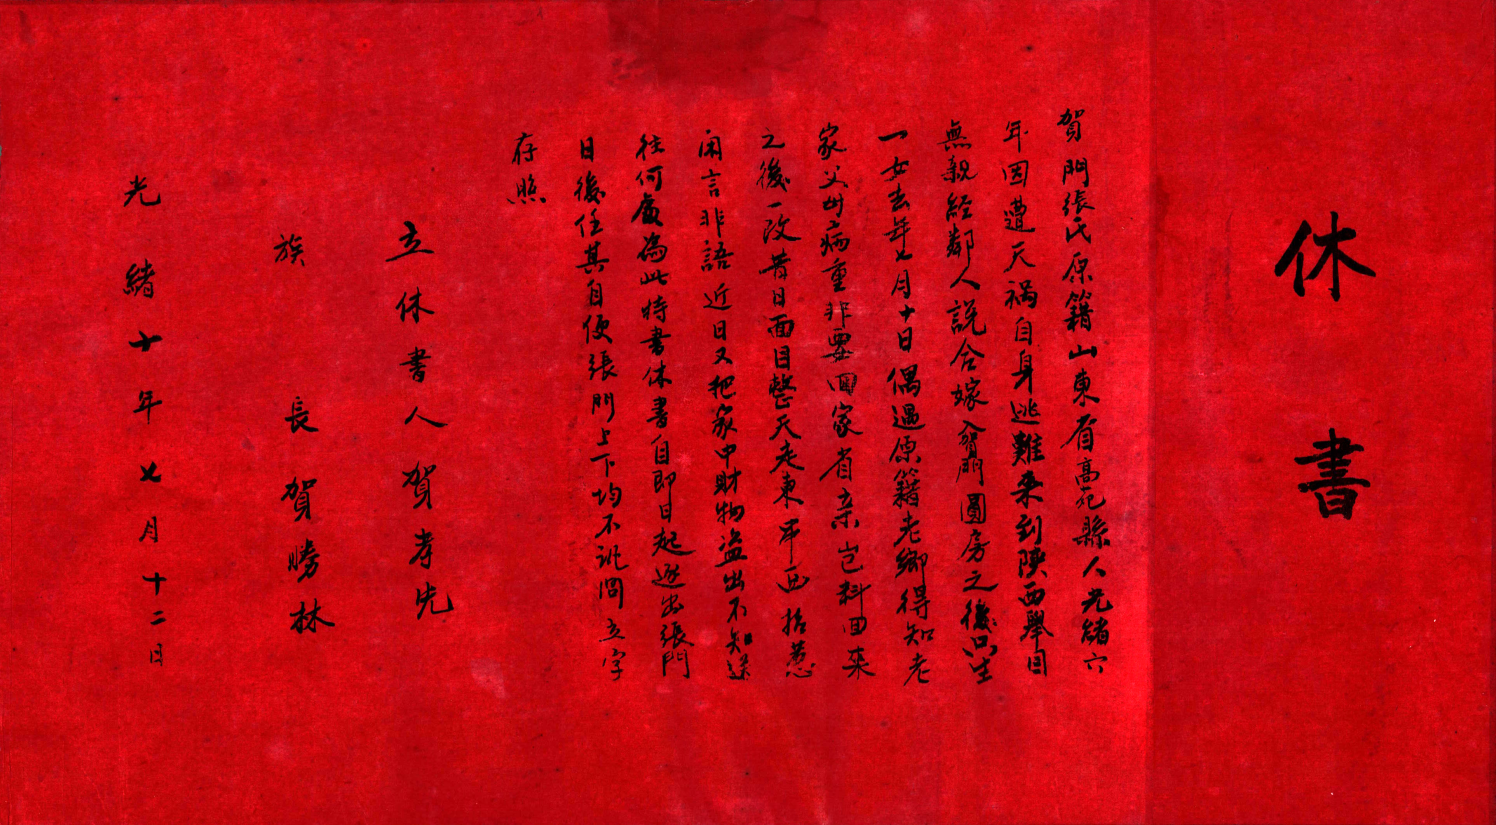 休書
賀門張氏原籍山東省高宛縣人光緒六
年因遭天祸自身逃難来到陝西舉目
無親經鄰人説合嫁入賀門圓房之後只生
一女去年七月十日偶遇原籍老鄉得知老
家父母病重非要囬家省亲岂料囬来
之後一改昔日面目整天走東串西招惹
闲言非語近日又把家中財物盗出不知送
往何處為此特書休書自即日起逐出張門
日後任其自便張門上下均不訛問立字
存照
立休書人賀孝先
族長賀勝林
光緒十年七月十二日